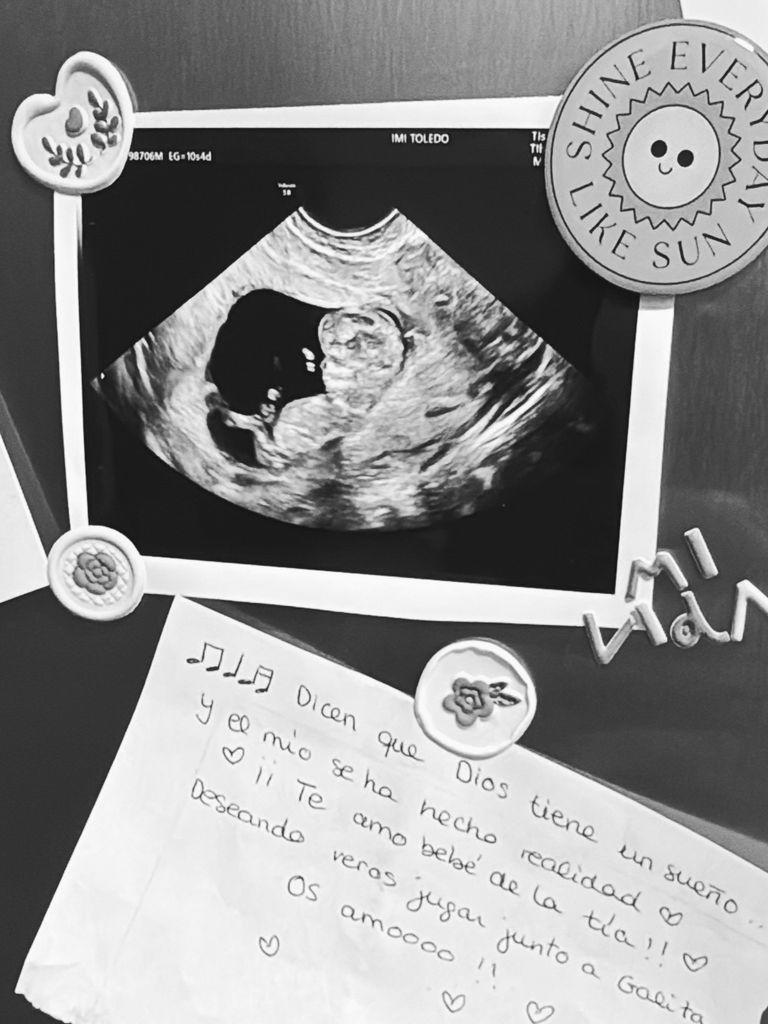 IMI TOLEDO
98706M EG=10s4d
SHINE EVERYDAY
LIKE SUN
mi
vida
Dicen que Dios tiene un sueño...
y el mío se ha hecho realidad
¡¡ Te amo bebé de la tía!!
Deseando veros jugar junto a Galita
Os amoooo!!